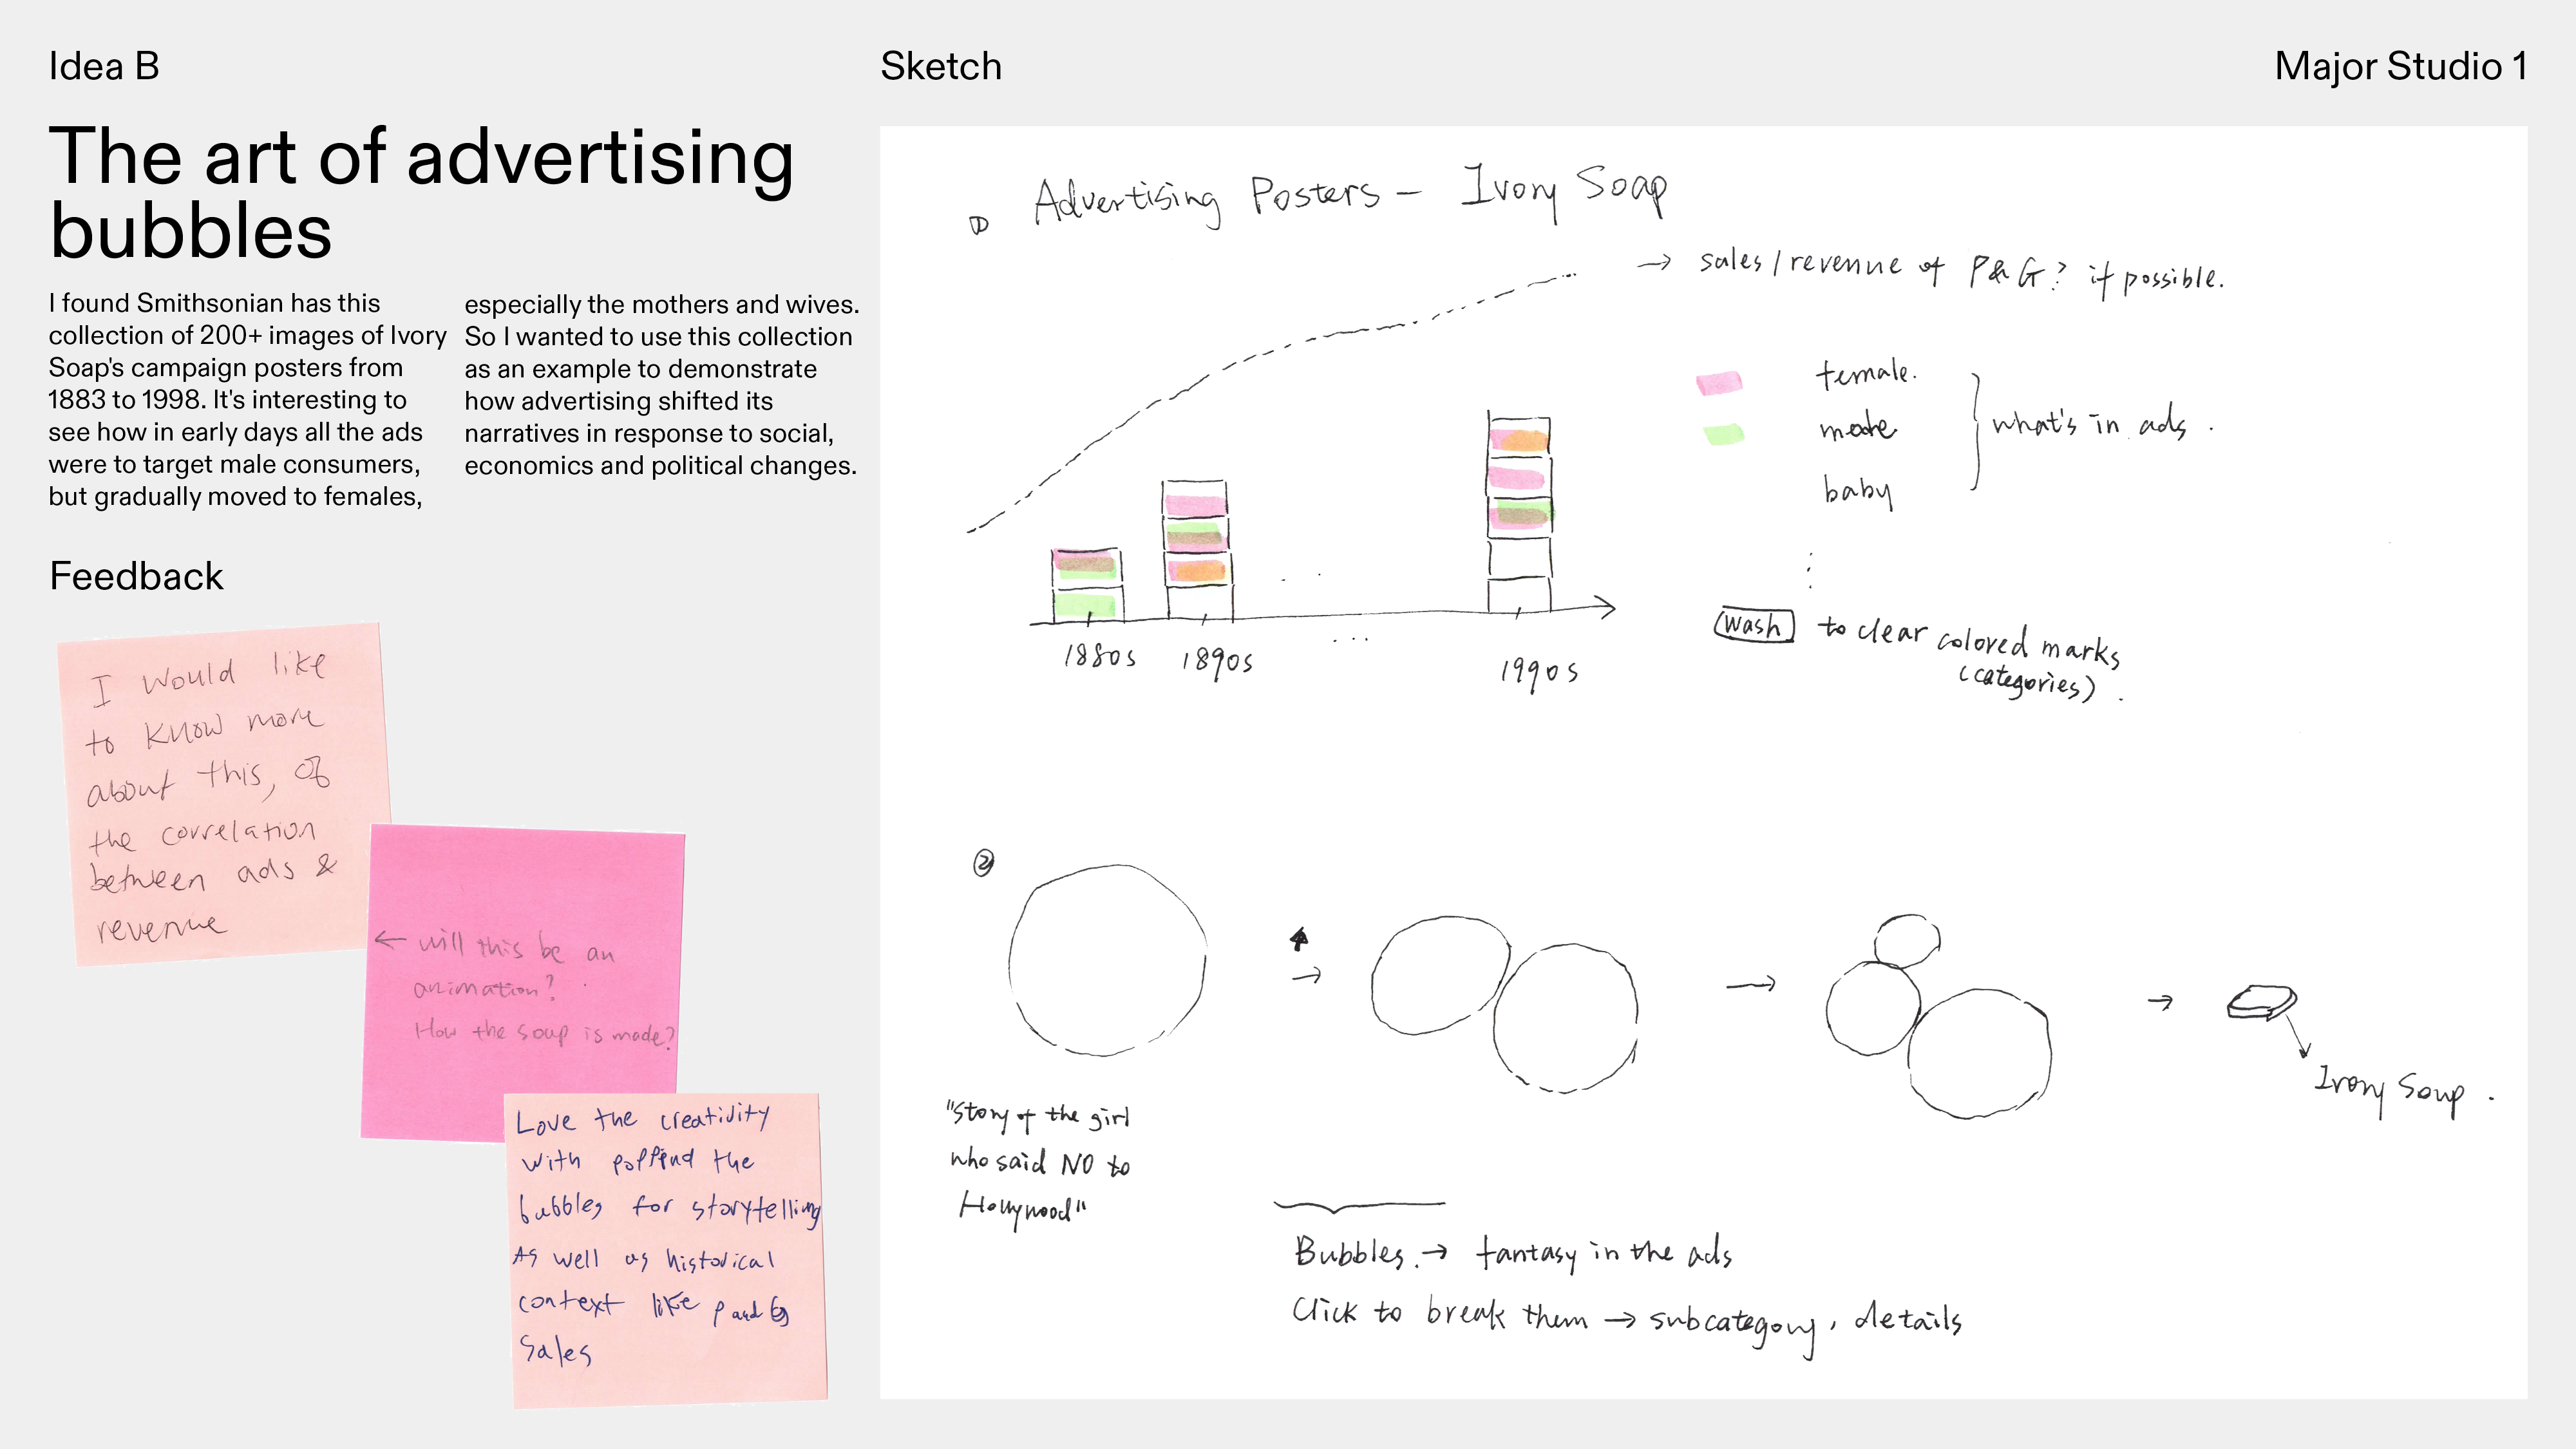 Idea B
Sketch
Major Studio 1
The art of advertising
bubbles
I found Smithsonian has this
collection of 200+ images of Ivory
Soap's campaign posters from
1883 to 1998. It's interesting to
see how in early days all the ads
were to target male consumers,
but gradually moved to females,
especially the mothers and wives.
So I wanted to use this collection
as an example to demonstrate
how advertising shifted its
narratives in response to social,
economics and political changes.
Feedback
I would like
to know more
about this, of
the correlation
between ads &
revenue
← will this be an
animation?
How the soup is made?
Love the creativity
with the
bubbles for storytelling
As well as historical
context like P and G
Sales
① Advertising Posters – Ivory Soap
→ sales/revenue of P&G? if possible.
female.
male
baby
what's in ads.
⋮
wash to clear colored marks
(categories).
1880s
1890s
...
1990s
②
→
→
→
Ivory Soup.
"Story of the girl
who said NO to
Hollywood"
Bubbles. → fantasy in the ads
Click to break them → subcategory, details